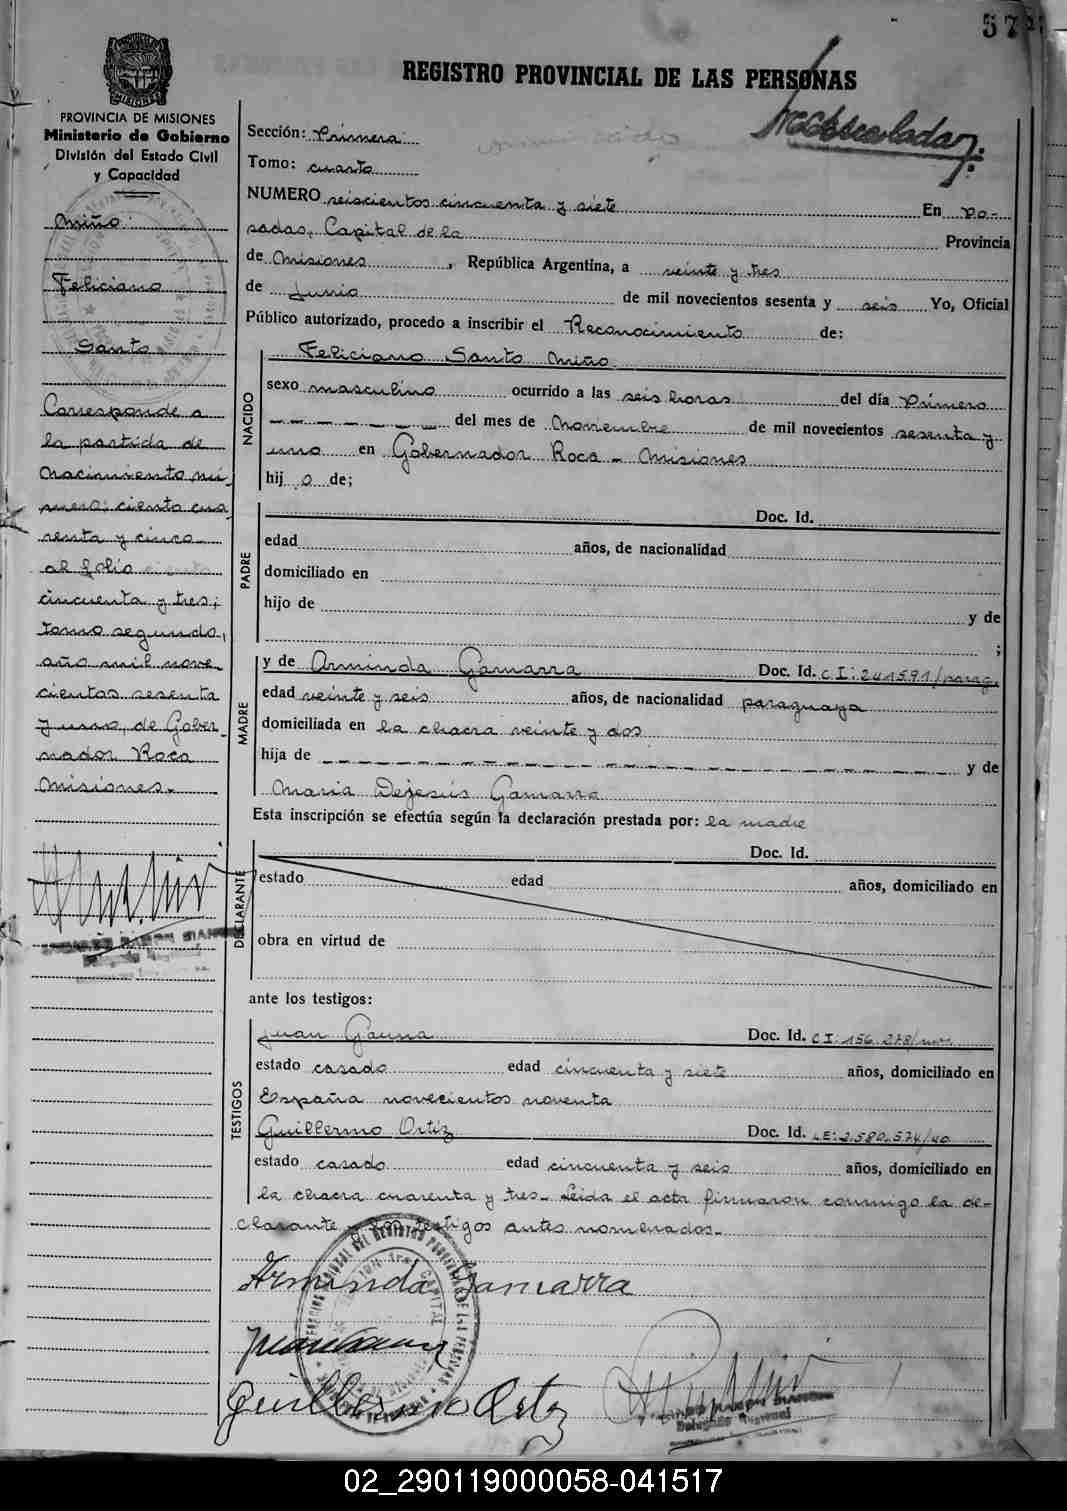 57
REGISTRO PROVINCIAL DE LAS PERSONAS
PROVINCIA DE MISIONES
Ministerio de Gobierno
División del Estado Civil
y Capacidad
Miño:
Feliciano
Santo
Corresponde a
la partida de
nacimiento nú-
mero: ciento cua
renta y cinco
al folio ciento
cincuenta y tres;
tomo segundo,
año mil nove-
cientos sesenta
y uno, de Gober-
nador Roca
Misiones.-
Sección: Primera
Tomo: cuarto
NUMERO seiscientos cincuenta y siete En Po-
sadas, Capital de la Provincia
de Misiones, República Argentina, a veinte y tres
de Junio de mil novecientos sesenta y seis Yo, Oficial
Público autorizado, procedo a inscribir el Reconocimiento de:
NACIDO
Feliciano Santo Miño
sexo masculino ocurrido a las seis horas del día Primero
del mes de Noviembre de mil novecientos sesenta y
uno en Gobernador Roca - Misiones
hij o de;
PADRE
Doc. Id.
edad años, de nacionalidad
domiciliado en
hijo de y de
;
MADRE
y de Arminda Gamarra Doc. Id. C I: 241591/parag.
edad veinte y seis años, de nacionalidad paraguaya
domiciliada en la chacra veinte y dos
hija de y de
Maria Dejesús Gamarra
Esta inscripción se efectúa según la declaración prestada por: la madre
DECLARANTE
Doc. Id.
estado edad años, domiciliado en
obra en virtud de
ante los testigos:
TESTIGOS
Juan Gauna Doc. Id. C I: 156.278/
estado casado edad cincuenta y siete años, domiciliado en
España novecientos noventa
Guillermo Ortiz Doc. Id. LE: 2.580.574/40
estado casado edad cincuenta y seis años, domiciliado en
la chacra cuarenta y tres.- Leida el acta firmaron conmigo la de-
clarante y los testigos antes nomenados.-
Arminda Gamarra
Guillermo Ortiz
02_290119000058-041517